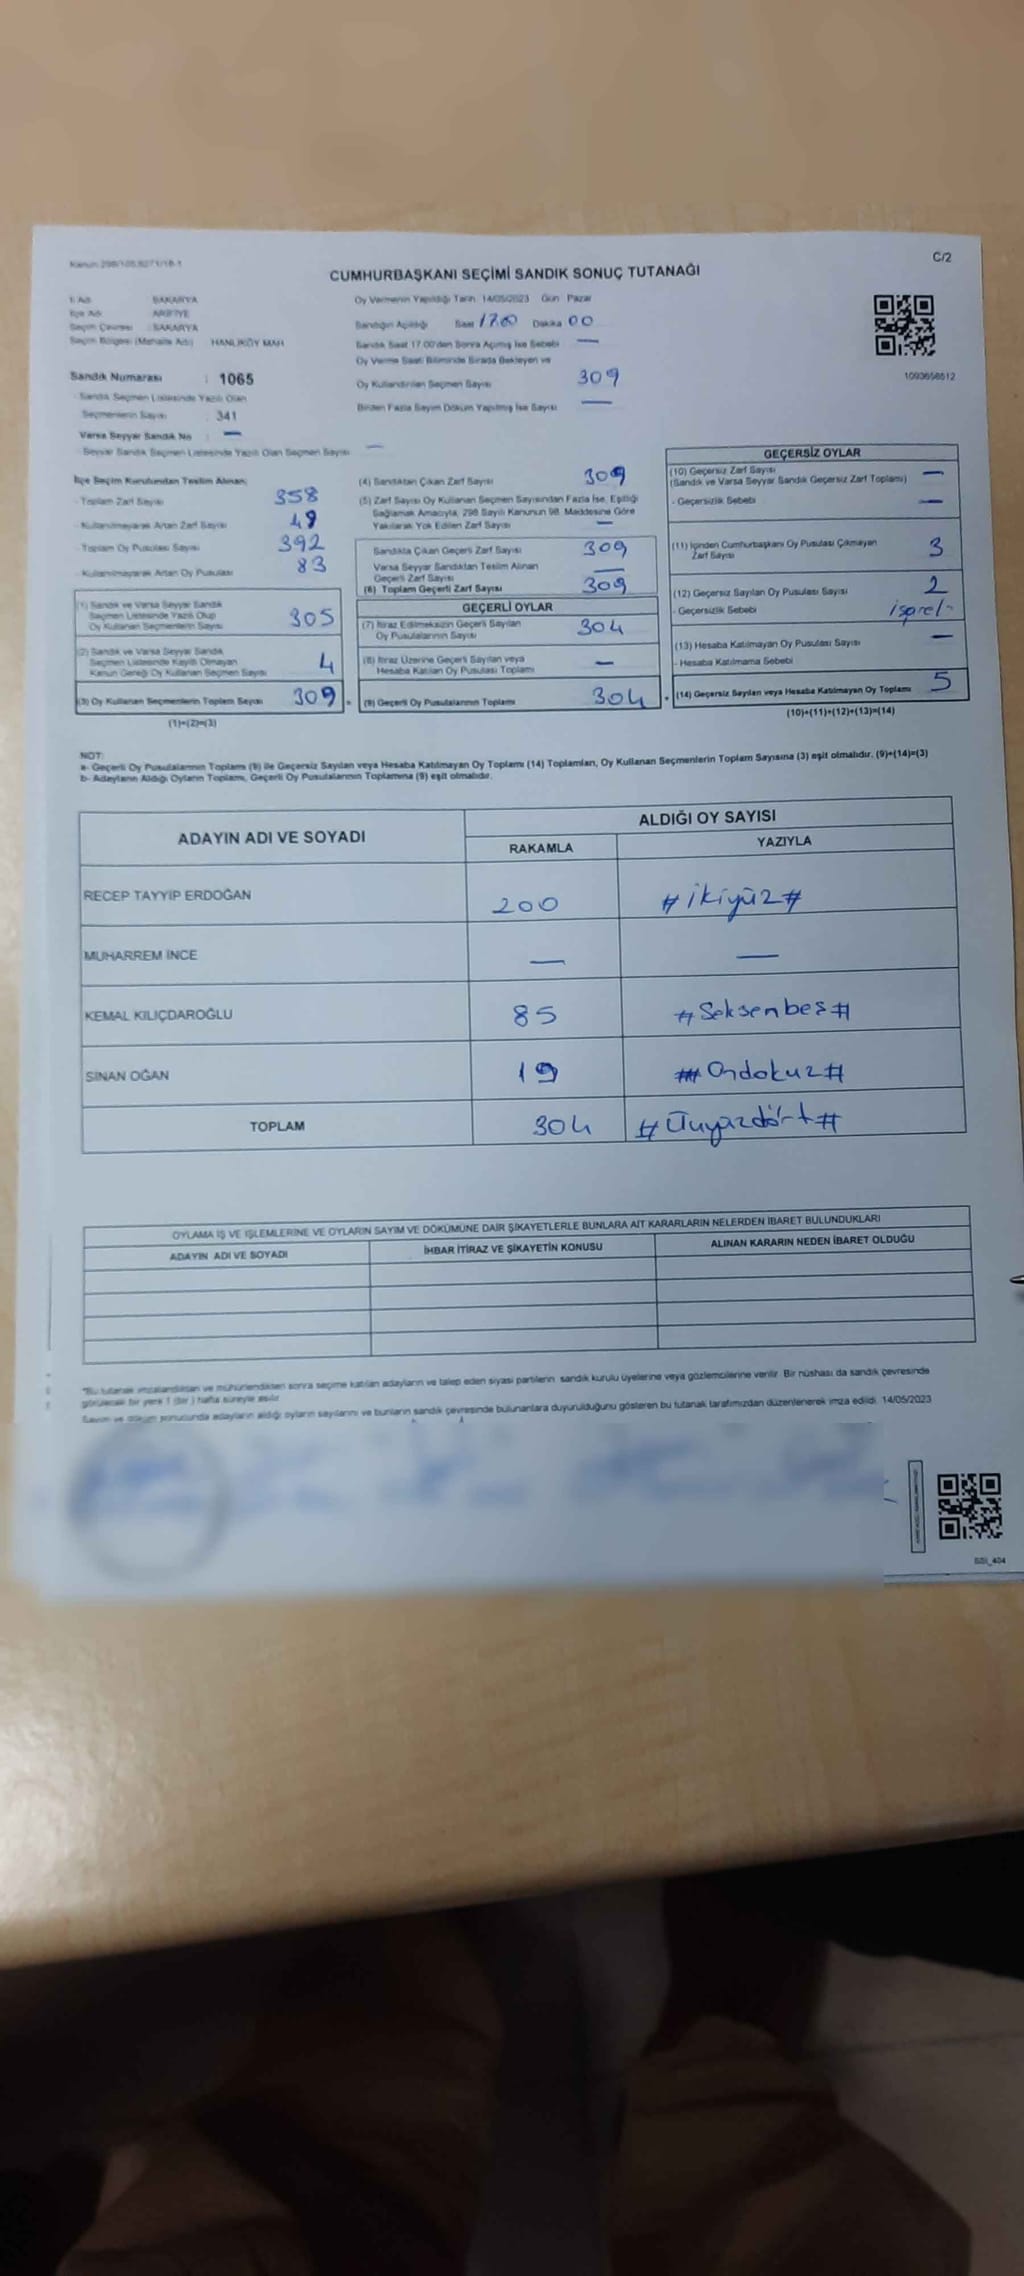 Kanun: 298/105,6271/18-1
C/2
CUMHURBAŞKANI SEÇİMİ SANDIK SONUÇ TUTANAĞI
İl Adı SAKARYA
İlçe Adı ARİFİYE
Seçim Çevresi : SAKARYA
Seçim Bölgesi (Mahalle Adı) HANLIKÖY MAH
Sandık Numarası : 1065
- Sandık Seçmen Listesinde Yazılı Olan
Seçmenlerin Sayısı : 341
Varsa Seyyar Sandık No : —
- Seyyar Sandık Seçmen Listesinde Yazılı Olan Seçmen Sayısı —
Oy Vermenin Yapıldığı Tarih: 14/05/2023 Gün Pazar
Sandığın Açıldığı Saat 17.00 Dakika 00
Sandık Saat 17.00'den Sonra Açılmış İse Sebebi —
Oy Verme Saati Bitiminde Sırada Bekleyen ve
Oy Kullandırılan Seçmen Sayısı 309
Birden Fazla Sayım Döküm Yapılmış İse Sayısı —
1093656512
İlçe Seçim Kurulundan Teslim Alınan;
- Toplam Zarf Sayısı 358
- Kullanılmayarak Artan Zarf Sayısı 49
- Toplam Oy Pusulası Sayısı 392
- Kullanılmayarak Artan Oy Pusulası 83
(1) Sandık ve Varsa Seyyar Sandık
Seçmen Listesinde Yazılı Olup
Oy Kullanan Seçmenlerin Sayısı 305
(2) Sandık ve Varsa Seyyar Sandık
Seçmen Listesinde Kayıtlı Olmayan
Kanun Gereği Oy Kullanan Seçmen Sayısı 4
(3) Oy Kullanan Seçmenlerin Toplam Sayısı 309
(1)+(2)=(3)
(4) Sandıktan Çıkan Zarf Sayısı 309
(5) Zarf Sayısı Oy Kullanan Seçmen Sayısından Fazla İse, Eşitliği
Sağlamak Amacıyla, 298 Sayılı Kanunun 98. Maddesine Göre
Yakılarak Yok Edilen Zarf Sayısı —
Sandıkta Çıkan Geçerli Zarf Sayısı 309
Varsa Seyyar Sandıktan Teslim Alınan
Geçerli Zarf Sayısı —
(6) Toplam Geçerli Zarf Sayısı 309
GEÇERLİ OYLAR
(7) İtiraz Edilmeksizin Geçerli Sayılan
Oy Pusulalarının Sayısı 304
(8) İtiraz Üzerine Geçerli Sayılan veya
Hesaba Katılan Oy Pusulası Toplamı —
(9) Geçerli Oy Pusulalarının Toplamı 304
GEÇERSİZ OYLAR
(10) Geçersiz Zarf Sayısı —
(Sandık ve Varsa Seyyar Sandık Geçersiz Zarf Toplamı)
- Geçersizlik Sebebi —
(11) İçinden Cumhurbaşkanı Oy Pusulası Çıkmayan
Zarf Sayısı 3
(12) Geçersiz Sayılan Oy Pusulası Sayısı 2
- Geçersizlik Sebebi
(13) Hesaba Katılmayan Oy Pusulası Sayısı —
- Hesaba Katılmama Sebebi
(14) Geçersiz Sayılan veya Hesaba Katılmayan Oy Toplamı 5
(10)+(11)+(12)+(13)=(14)
NOT:
a- Geçerli Oy Pusulalarının Toplamı (9) ile Geçersiz Sayılan veya Hesaba Katılmayan Oy Toplamı (14) Toplamları, Oy Kullanan Seçmenlerin Toplam Sayısına (3) eşit olmalıdır. (9)+(14)=(3)
b- Adayların Aldığı Oyların Toplamı, Geçerli Oy Pusulalarının Toplamına (9) eşit olmalıdır.
ADAYIN ADI VE SOYADI
ALDIĞI OY SAYISI
RAKAMLA YAZIYLA
RECEP TAYYİP ERDOĞAN 200 #ikiyüz#
MUHARREM İNCE — —
KEMAL KILIÇDAROĞLU 85 #Seksenbeş#
SİNAN OĞAN 19 #Ondokuz#
TOPLAM 304 #Üçyüzdört#
OYLAMA İŞ VE İŞLEMLERİNE VE OYLARIN SAYIM VE DÖKÜMÜNE DAİR ŞİKAYETLERLE BUNLARA AİT KARARLARIN NELERDEN İBARET BULUNDUKLARI
ADAYIN ADI VE SOYADI İHBAR İTİRAZ VE ŞİKAYETİN KONUSU ALINAN KARARIN NEDEN İBARET OLDUĞU
*Bu tutanak imzalandıktan ve mühürlendikten sonra seçime katılan adayların ve talep eden siyasi partilerin sandık kurulu üyelerine veya gözlemcilerine verilir. Bir nüshası da sandık çevresinde
görülecek bir yere 1 (bir) hafta süreyle asılır.
Sayım ve döküm sonucunda adayların aldığı oyların sayılarını ve bunların sandık çevresinde bulunanlara duyurulduğunu gösteren bu tutanak tarafımızdan düzenlenerek imza edildi. 14/05/2023
SSI_404